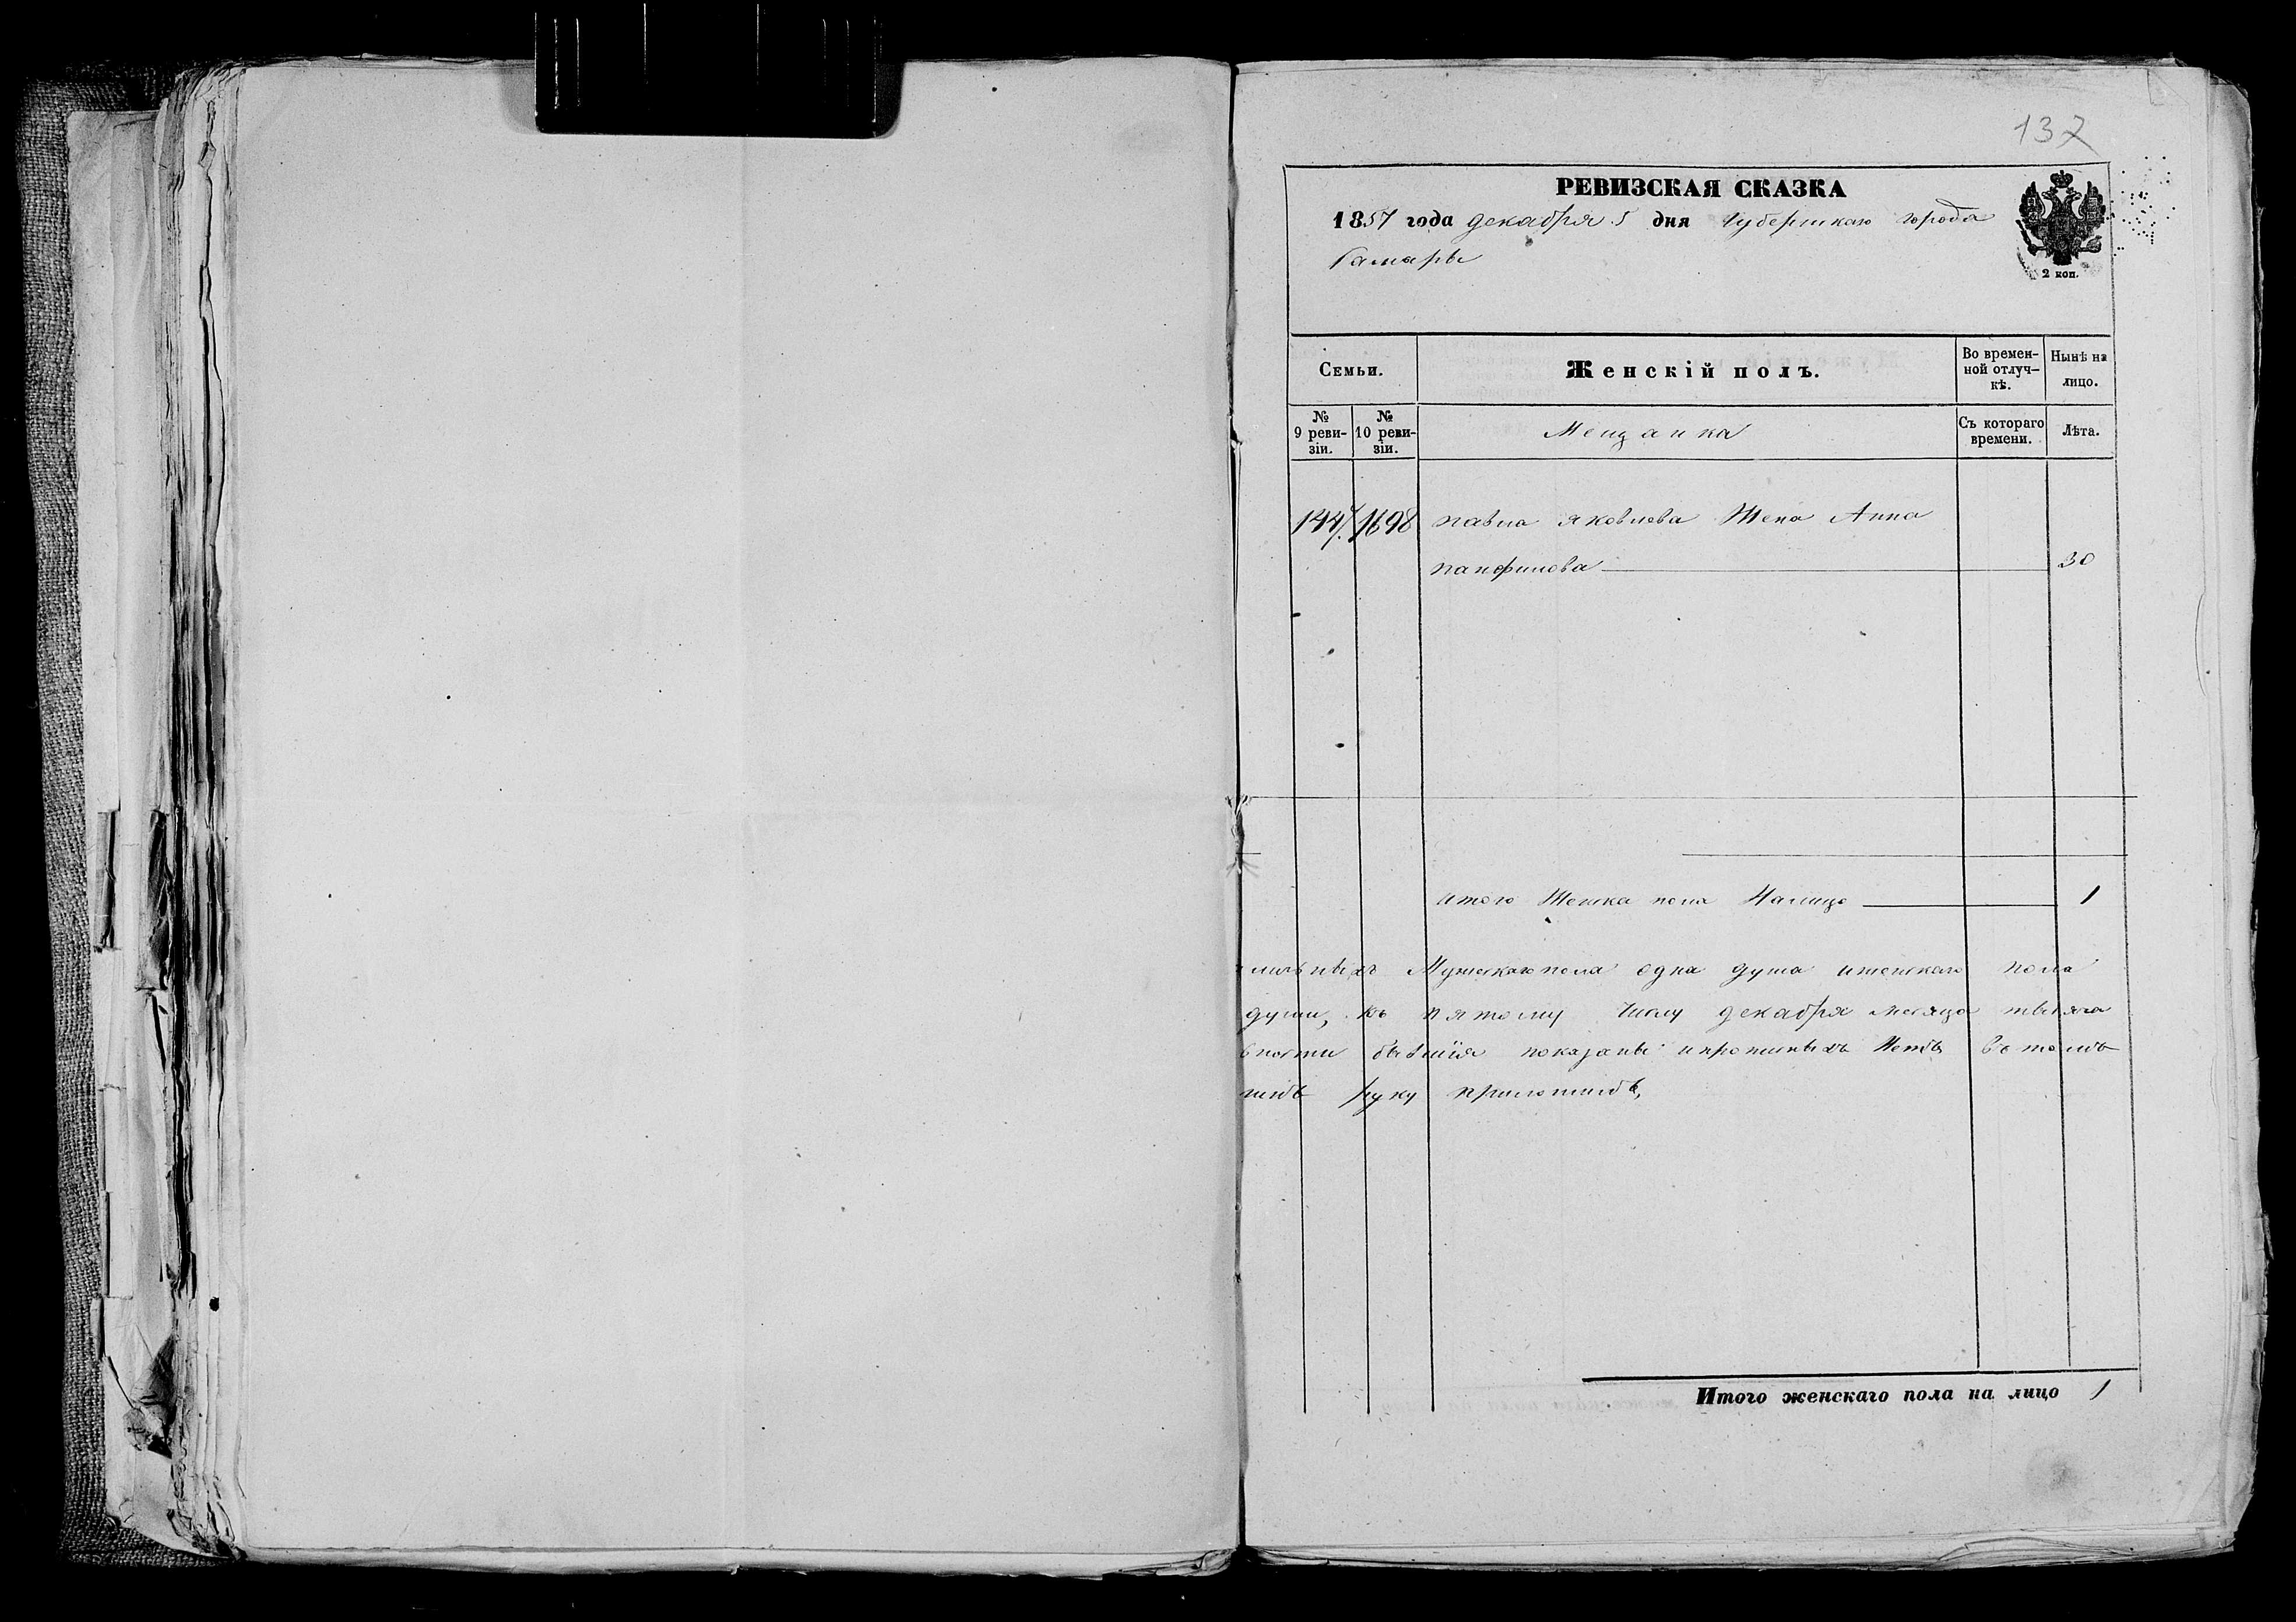 137
РЕВИЗСКАЯ СКАЗКА
1857 года декабря 5 дня Губернскаго города
Самары
2 коп.
Семьи.
Женскій полъ.
Во времен-
ной отлуч-
кѣ.
Нынѣ на
лицо.
№
9 реви-
зіи.
№
10 реви-
зіи.
Мещанка
Съ котораго
времени.
Лѣта.
1698 павла яковлева Жена Анна
панфилова 30
итого Женска пола Налицо 1
Мужескаго пола одна душа иженскаго пола
души, къ пятому Числу декабря месяца
бывшія показаны ипрописныхъ Нетъ втомъ
руку приложилъ,
Итого женскаго пола на лицо 1